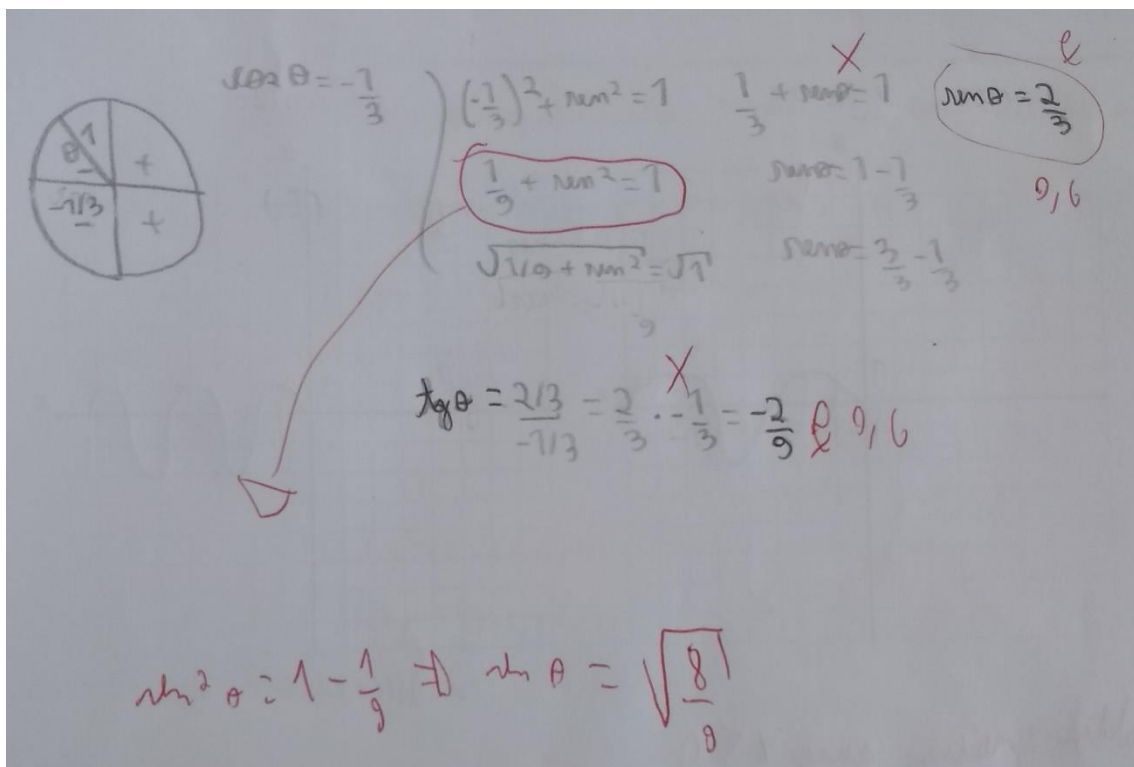 θ 1 +
-1/3 +
cos θ = -1/3
(-1/3)² + sen² = 1
1/9 + sen² = 1
√1/9 + sen² = √1
9
X
1/3 + senθ = 1
senθ = 1 - 1/3
senθ = 3/3 - 1/3
senθ = 2/3
0,6
X
tgθ = 2/3 / -1/3 = 2/3 · -1/3 = -2/9 0,6
sen² θ = 1 - 1/9 ⇒ sen θ = √8/9